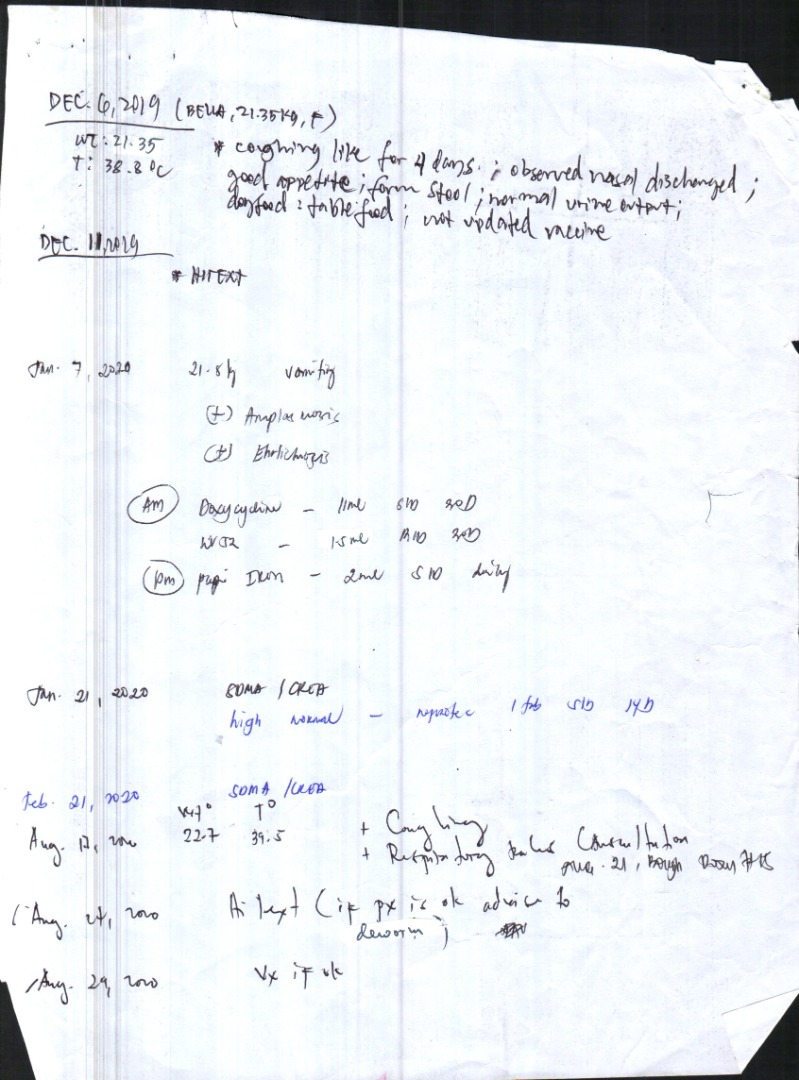 DEC. 6, 2019 (BELLA, 21.35kg, F)
WT: 21.35
T: 38.8 °C
* coughing like for 4 days. ; observed nasal discharged ;
good appetite ; form stool ; normal urine output ;
dogfood : table food ; not updated vaccine
DEC. 11, 2019
Jan. 7, 2020 21.8 kg vomiting
(+) Anaplasmosis
(+) Ehrlichiosis
AM Doxycycline - 11ml SID 30D
- 1.5ml BID 30D
PM Iron - 2ml SID daily
Jan. 21, 2020 SDMA / CREA
high normal - 1 tab SID 14D
Feb. 21, 2020 SDMA / CREA
wt° T°
Aug. 2020 22.7 39.5 + Coughing
+ Respiratory Consultation
Aug. 24, 2020 text (if px is ok advice to
deworm)
Aug. 29, 2020 Vx if ok